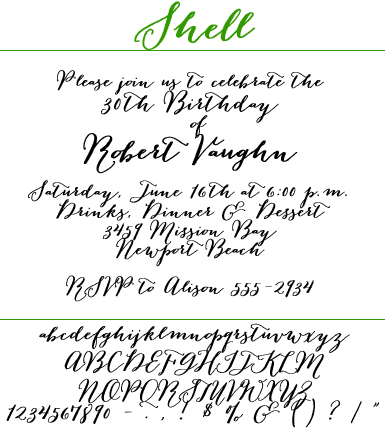 Shell
Please join us to celebrate the
30th Birthday
of
Robert Vaughn
Saturday, June 16th at 6:00 p.m.
Drinks, Dinner & Dessert
3459 Mission Bay
Newport Beach
RSVP to Alison 555-2934
abcdefghijklmnopqrstuvwxyz
ABCDEFGHIJKLM
NOPQRSTUVWXYZ
1234567890 - . , ! $ % & ( ) ? / "